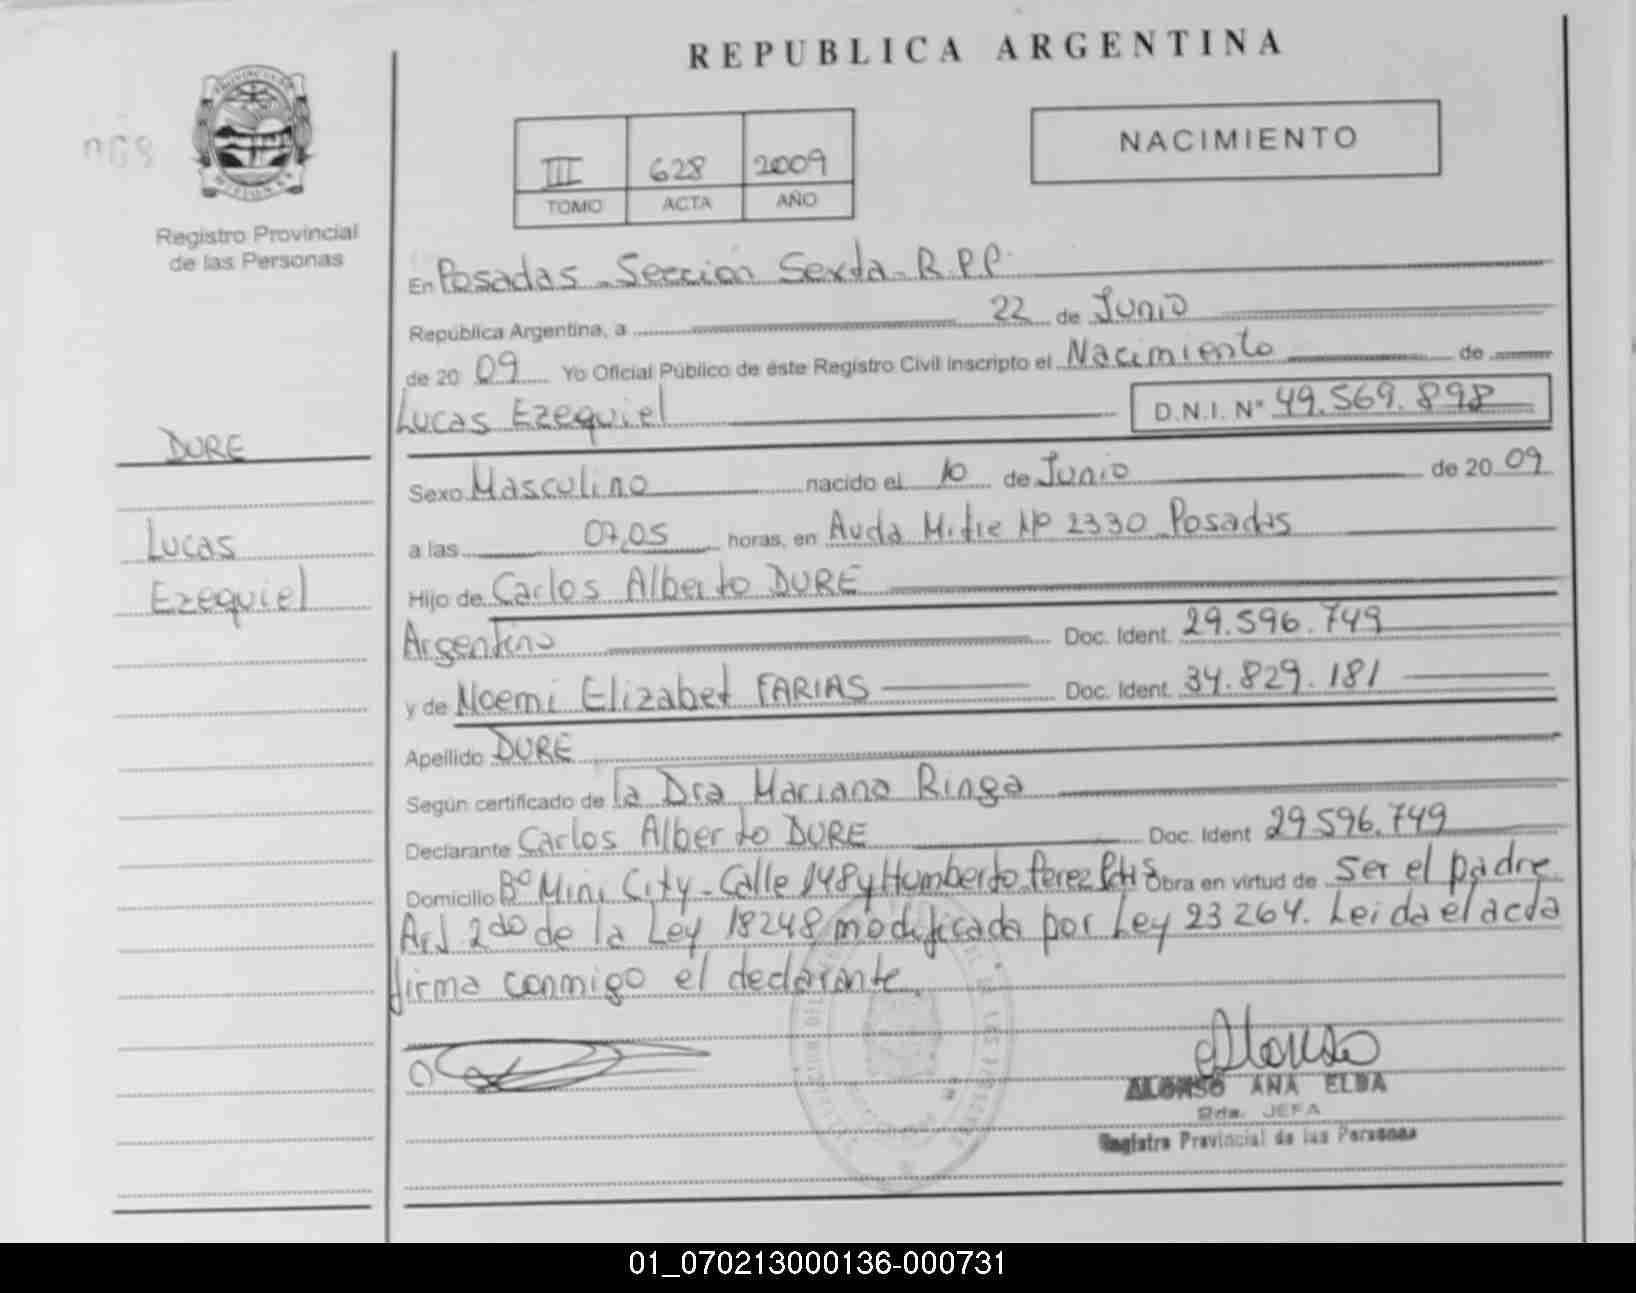 REPUBLICA ARGENTINA
PROVINCIA DE
MISIONES
Registro Provincial
de las Personas
III 628 2009
TOMO ACTA AÑO
NACIMIENTO
En Posadas - Seccion Sexta - R.P.P.
República Argentina, a 22 de Junio
de 20 09 Yo Oficial Público de éste Registro Civil Inscripto el Nacimiento de
Lucas Ezequiel D.N.I. Nº 49.569.898
DURE
Lucas
Ezequiel
Sexo Masculino nacido el 10 de Junio de 20 09
a las 07,05 horas, en Avda Mitre Nº 2330 Posadas
Hijo de Carlos Alberto DURE
Argentino Doc. Ident. 29.596.749
y de Noemi Elizabet FARIAS Doc. Ident. 34.829.181
Apellido DURE
Según certificado de la Dra Mariana Ringa
Declarante Carlos Alberto DURE Doc. Ident 29.596.749
Domicilio Bº Mini City - Calle 148 y Humberto Perez Obra en virtud de ser el padre
Art 2do de la Ley 18248 modificada por Ley 23264. Leida el acta
firma conmigo el declarante.
Alonso
ALONSO ANA ELBA
2da. JEFA
Registro Provincial de las Personas
01_070213000136-000731